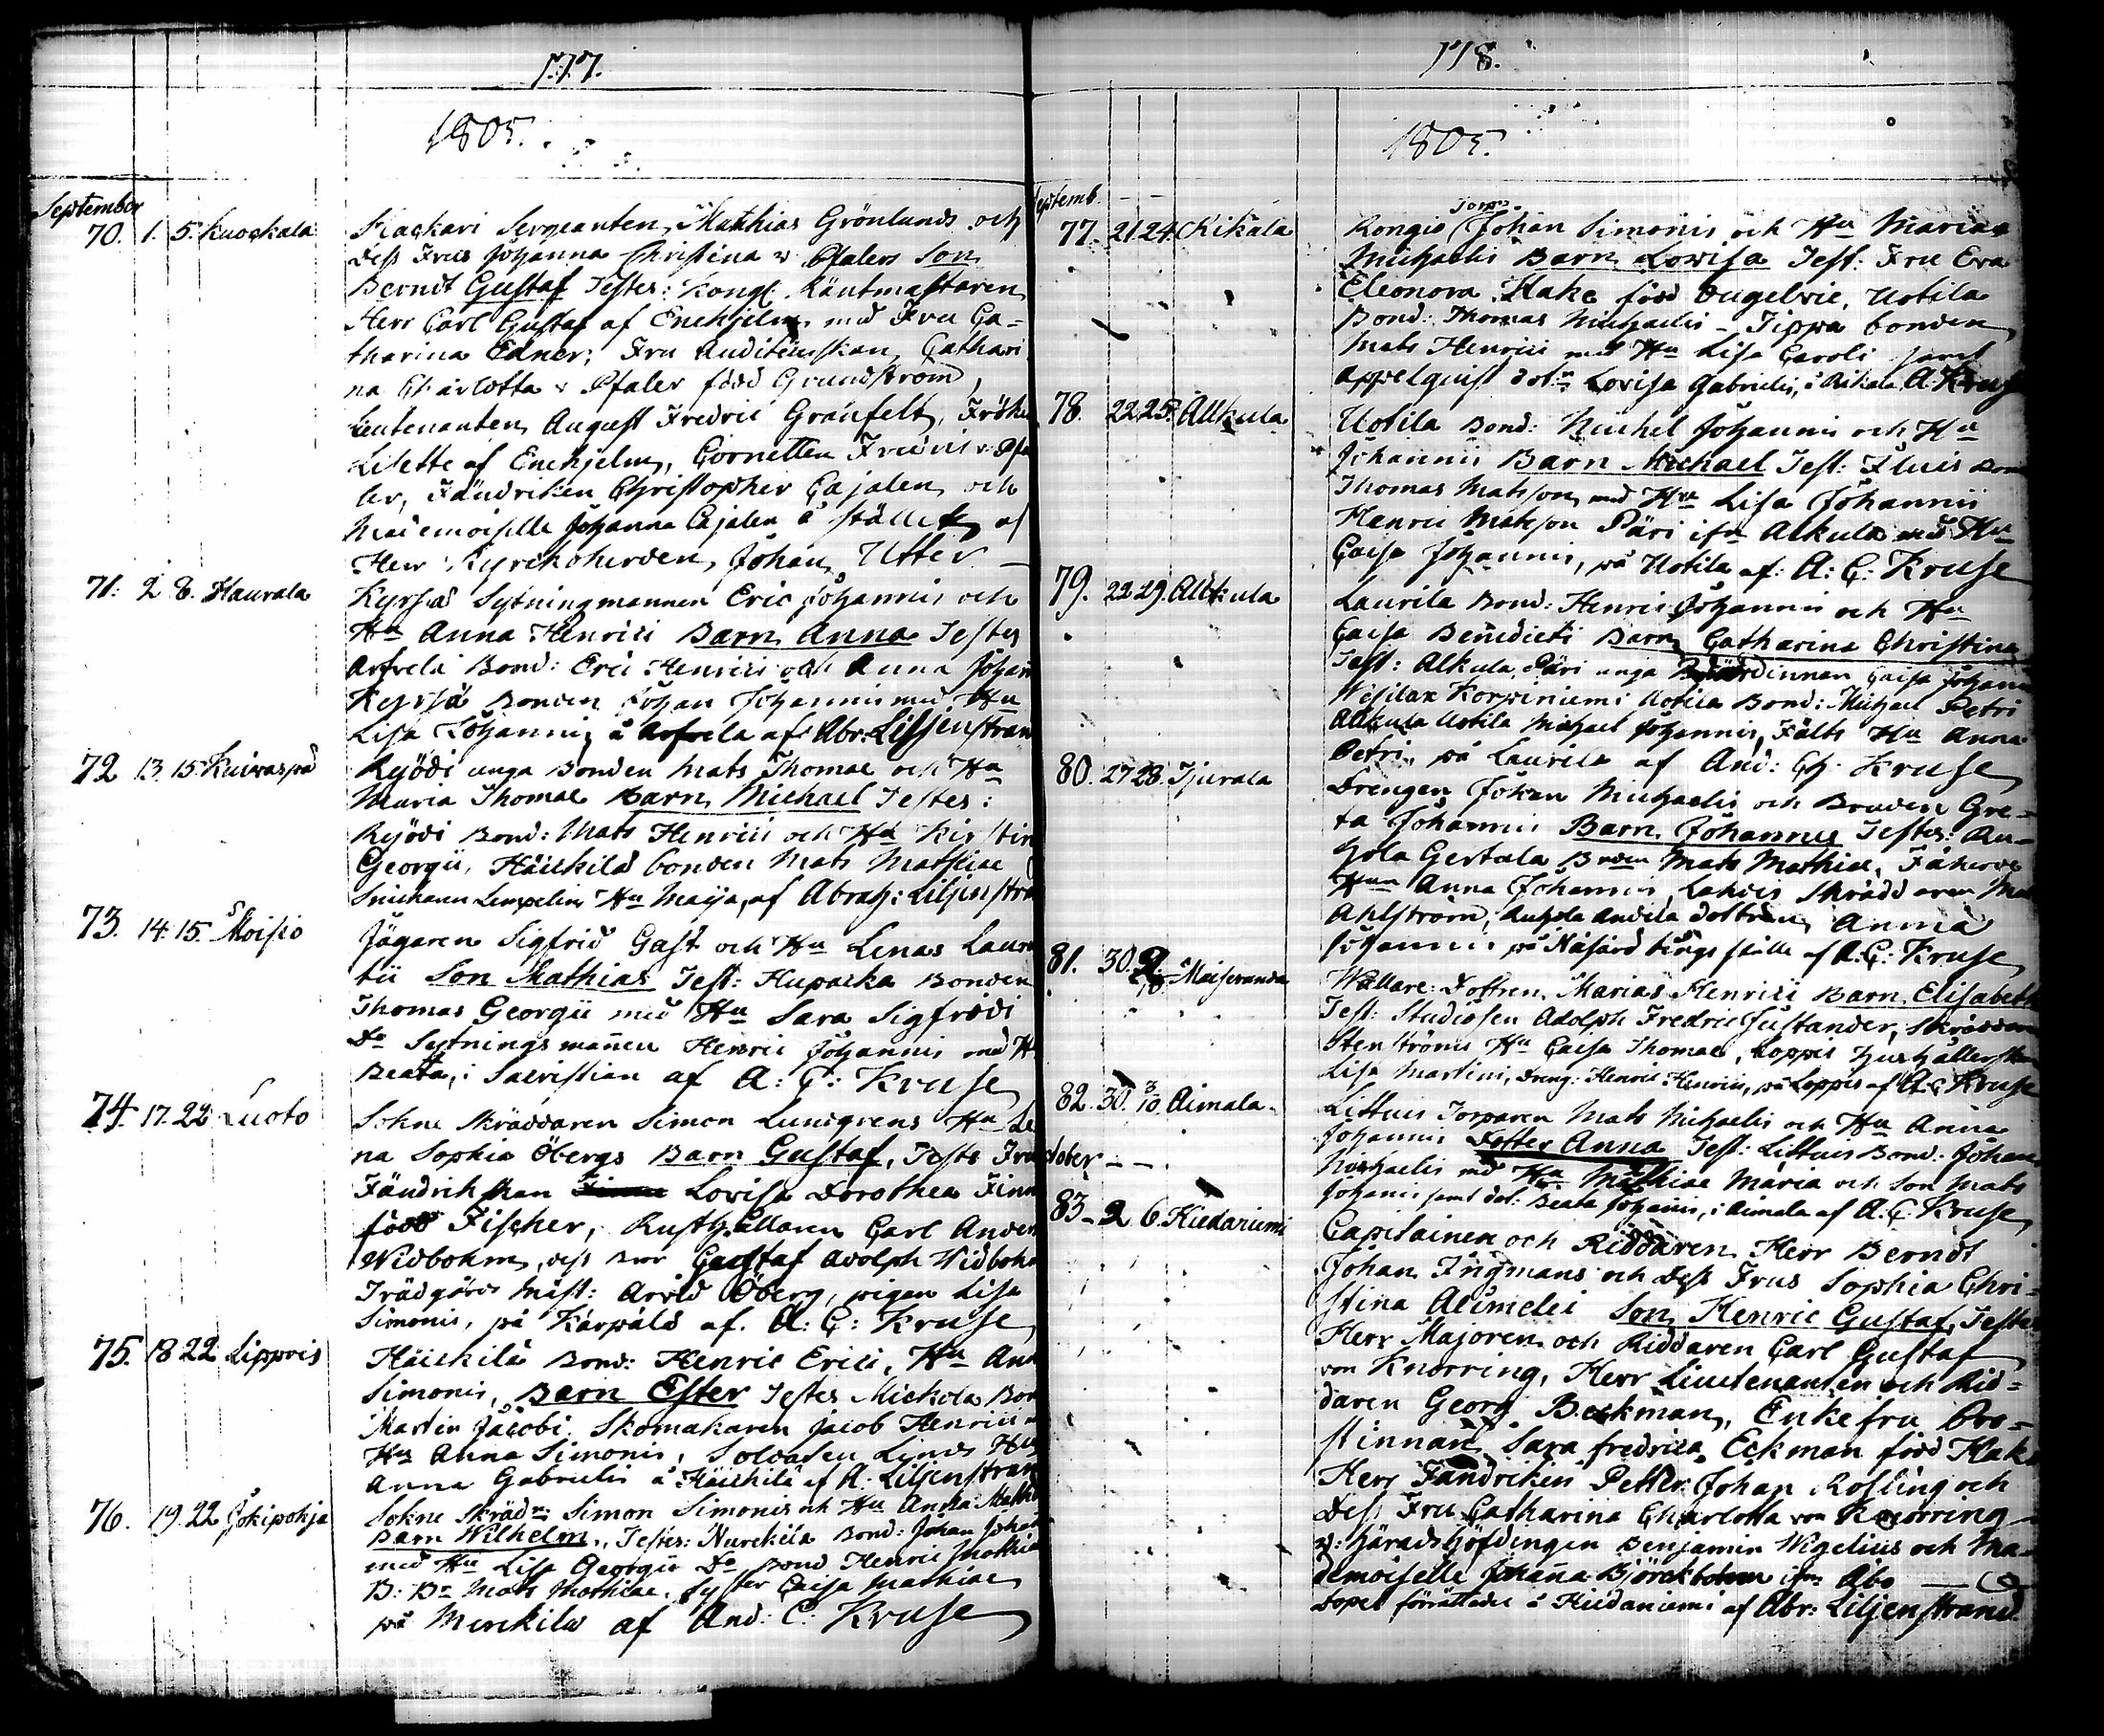 177.
1805.
September
70. 1. 5. Kuockala
Kackari Sergeanten Matthias Grönlunds och
dess Frus Johanna Christina v Pfalers Son
Berndt Gustaf Testes: Kongl. Räntmästaren
Herr Carl Gustaf af Enehjelm med Fru Ca-
tharina Edner; Fru Auditeurskan Cathari
na Charlotta v Pfaler född Grundström,
Leutenanten August Fredric Granfelt, Fröken
Lisette af Enehjelm, Cornetten Fredric v. Pfa
ler, Fändriken Christopher Cajalen och
Mademoiselle Johanna Cajalen å stället af
Herr Kyrckoherden Johan Utter
71. 2 8. Haurala
Kyrpä Sytningmannen Eric Johannis och
Hu Anna Henrici Barn Anna Testes
Arfvela Bond: Eric Henrici och Anna Johan
Kyrpä Bonden Johan Johannis med Hu
Lisa Johannis å Arfvela af Abr: Liljenstran
72 13. 15. Kuivaspä
Rejödi unga Bonden Mats Thomae och Hu
Maria Thomae Barn Michael Testes:
Rejödi Bond: Mats Henrici och Hu Kirstin
Georgii, Häickilä bonden Mats Mathiae
Hu Maija, af Abrah: Liljenstra
73. 14. 15. Moisio
Jägaren Sigfrid Gast och Hu Lenas Laure
tii Son Mathias Test: Hupacka Bonden
Thomas Georgii med Hu Sara Sigfridi
Do Sytningsmannen Henric Johannis med H
Beata, i Sacristian af A: C: Kruse
74. 17. 22 Luoto
Sokne Skräddaren Simon Lundgrens Hu Le
na Sophia Öbergs Barn Gustaf, Testes Fru
Fändrikskan Lovisa Dorothea Finn
född Fischer, Rusthållaren Carl Ander
Widbohm, dess Bror Gustaf Adolph Widbohm
Trädgårds Mäst: Arvid Öberg, pigan Lisa
Simonis, på Kärpälä af. A: C: Kruse
75. 18 22 Lippois
Häickilä Bond: Henric Erici, Hu Ann
Simonis, Barn Ester Testes Mickola Bon
Martin Jacobi. Skomakaren Jacob Henrici
Hu Anna Simonis, Soldaten Linds Hu
Anna Gabrielis å Häickilä af A. Liljenstran
76. 19. 22 Jokipohja
Sokne Skrädn Simon Simonis och Hu Anna Mathi
Barn Wilhelm, Testes: Nurckila Bond: Johan Johan
med Hu Lisa Georgii Do Bond Henric Mathiae
B: Dn Mats Mathiae, Syster Caisa Mathiae
på Murckila af And: C: Kruse
118.
1805.
Septemb.
77. 21 24. Kikala
Torp:
Rongis Johan Simonis och Hu Maria
Michaelis Barn Lovisa Test: Fru Eva
Eleonora Hake född Uotila
Bond: Thomas Michaelis - Jippa bonden
Mats Henrici med Hu Lisa Caroli samt
Appelquist dotn Lovisa Gabrielis, i Kikala A: Kruse
78. 22 25. Allkula
Uotila Bond: Michel Johannis och Hu
Johannis Barn Michael Test: Bon
Thomas Matsson med Hu Lisa Johannis
Henric Matsson Päri ifrn Alkula med Hu
Caisa Johannis, på Uotila af: A: C: Kruse
79. 22 29. Allkula
Laurila Bond: Henric Johannis och Hu
Caisa Benedicti Barn Catharina Christina
Test: Alkula Päri unga Caisa Johann
Wesilax Korpiniemi Uotila Bond: Michael Petri
Allkula Uotila Michael Johannis, Fälts Hu Anna
Petri, på Laurila af And: Ch. Kruse
80. 27 28. Tjurala
Drengen Johan Michaelis och Bruden Gre-
ta Johannis Barn Johannes Testes: An-
hola Gertala Bnden Mats Mathiae,
Hun Anna Johannis, Skräddaren Mats
Ahlström, dottren Anna
Johannis på Näsgård tings ställe af A: C: Kruse
81. 30. Maisvanda
Wallare: Dottren Marias Henrici Barn Elisabeth
Test: Studiosen Adolph Fredric Justander, Skräddare
Stenströms Hu Caisa Thomae, Loppis
Lisa Martini, Dreng: Henric Henrici, på Loppis af A: C: Kruse
82. 30. 3/10. Aimala
Littuis Torparen Mats Michaelis och Hu Anna
Johannis Dotter Anna Test: Littuis Bond: Johan
Michaelis med Hu Mathiae Maria och Son Mats
Johannis samt dot: Beata Johannis, i Aimala af A. C. Kruse
October
83 - 2 6. Kiedariumi
Capitainen och Riddaren Herr Berndt
Johan Ingmans och Dess Frus Sophia Chri-
stina Aeimelei Son Henric Gustaf, Testes
Herr Majoren och Riddaren Carl Gustaf
von Knorring, Herr Lieutenanten och Rid-
daren Georg Beckman, Enkefru Pro-
stinnan Sara fredrica Eckman född Hake
Herr Fändricken Petter Johan Rosling och
Dess Fru Catharina Charlotta von Knorring
v: häradshöfdingen Benjamin Wigelius och Ma-
demoiselle Johanna Björckbohm ifrn Åbo
Dopet förrättades å Kiedaniemi af Abr: Liljenstrand.